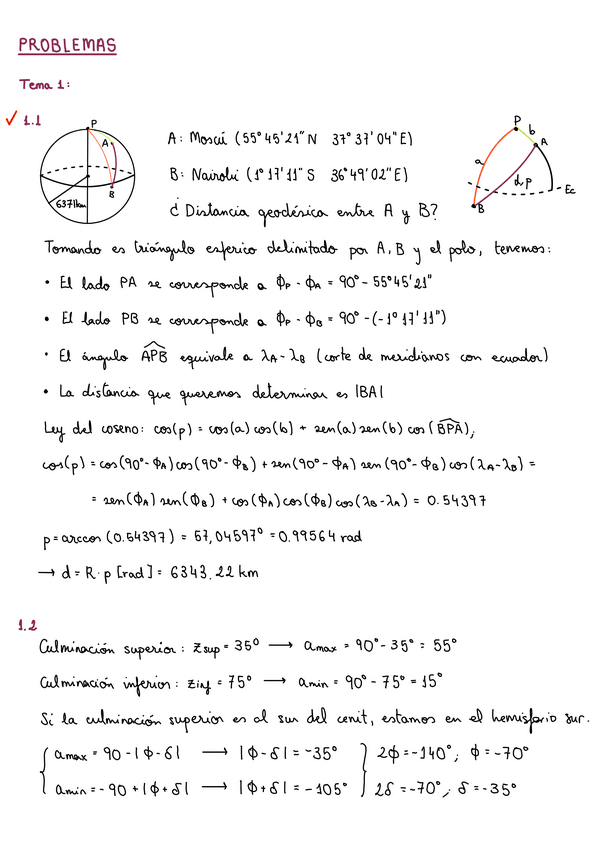 PROBLEMAS
Tema 1:
✓ 1.1
P
A
B
6371km
A: Moscú (55°45'21"N 37°37'04"E)
B: Nairobi (1°17'11"S 36°49'02"E)
¿Distancia geodésica entre A y B?
P
b
A
a
d p
B
Ec
Tomando es triángulo esférico delimitado por A, B y el polo, tenemos:
• El lado PA se corresponde a ϕP - ϕA = 90° - 55°45'21"
• El lado PB se corresponde a ϕP - ϕB = 90° - (-1°17'11")
• El ángulo APB equivale a λA - λB (corte de meridianos con ecuador)
• La distancia que queremos determinar es |BA|
Ley del coseno: cos(p) = cos(a) cos(b) + sen(a) sen(b) cos(BPA),
cos(p) = cos(90°-ϕA) cos(90°-ϕB) + sen(90°-ϕA) sen(90°-ϕB) cos(λA-λB) =
= sen(ϕA) sen(ϕB) + cos(ϕA) cos(ϕB) cos(λB-λA) = 0.54397
p = arccos (0.54397) = 57,04597° = 0.99564 rad
→ d = R · p [rad] = 6343.22 km
1.2
Culminación superior: Zsup = 35° → amax = 90° - 35° = 55°
Culminación inferior: Zinf = 75° → amin = 90° - 75° = 15°
Si la culminación superior es al sur del cenit, estamos en el hemisferio sur.
{ amax = 90 - |ϕ-δ| → |ϕ-δ| = -35° } 2ϕ = -140°; ϕ = -70°
{ amin = -90 + |ϕ+δ| → |ϕ+δ| = -105° } 2δ = -70°, δ = -35°